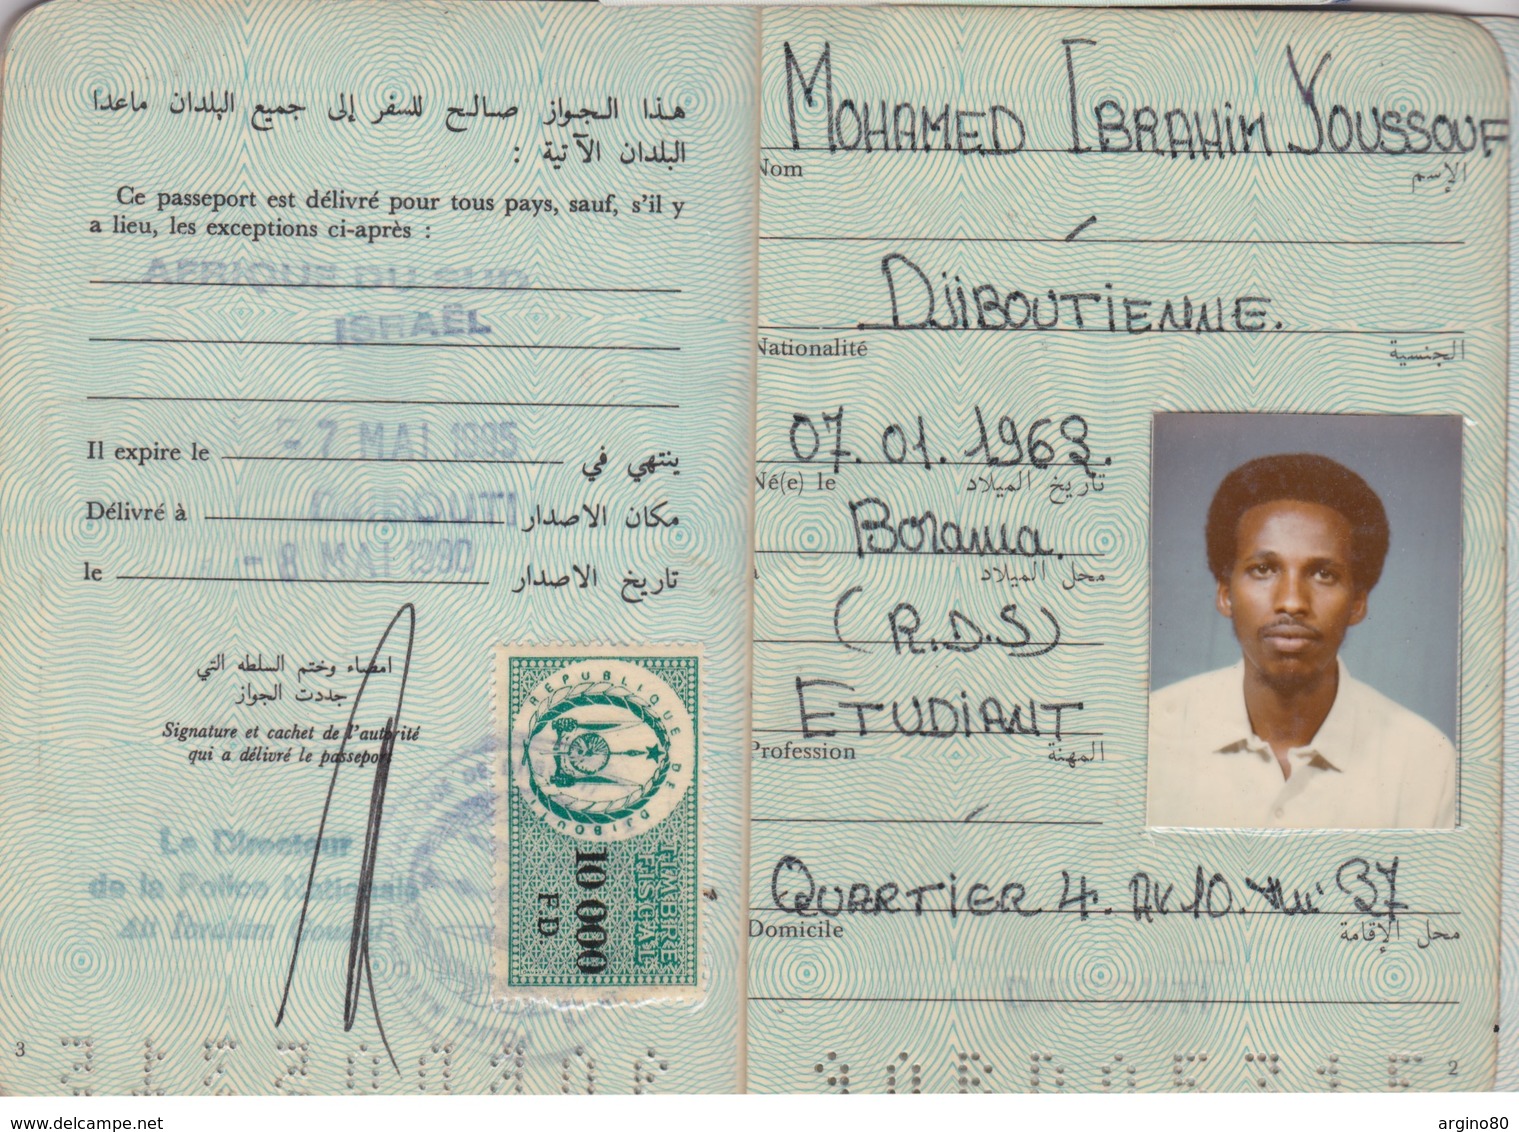 هذا الجواز صالح للسفر إلى جميع البلدان ماعدا
البلدان الآتية :
Ce passeport est délivré pour tous pays, sauf, s'il y
a lieu, les exceptions ci-après :
AFRIQUE DU SUD
ISRAËL
Il expire le - 7 MAI 1995 ينتهي في
Délivré à مكان الاصدار
le - 8 MAI 1990 تاريخ الاصدار
امضاء وختم السلطه التي
جددت الجواز
Signature et cachet de l'autorité
qui a délivré le passeport
Le Directeur
de la Police Nationale
REPUBLIQUE DE DJIBOUTI
TIMBRE
FISCAL
10 000
F.D.
3
MOHAMED IBRAHIM YOUSSOUF
Nom الإسم
DJIBOUTIENNE.
Nationalité الجنسية
07.01.1963.
Né(e) le تاريخ الميلاد
محل الميلاد
(R.D.S)
ETUDIANT
Profession المهنة
QUARTIER 4. 10. 37
Domicile محل الإقامة
2
www.delcampe.net
argino80